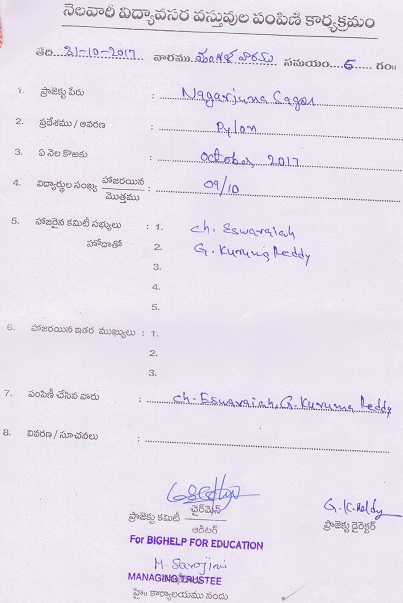 నెలవారీ విద్యావసర వస్తువుల పంపిణీ కార్యక్రమం
తేది 31-10-2017 వారము మంగళవారము సమయం 6 గం॥
1. ప్రాజెక్టు పేరు : Nagarjuna Sagar
2. ప్రదేశము / ఆవరణ : Pylon
3. ఏ నెల కొఱకు : October 2017
4. విద్యార్థుల సంఖ్య హాజరయిన / మొత్తము : 09/10
5. హాజరైన కమిటీ సభ్యులు : 1. ch. Eswaraiah
హోదాతో 2. G. Kurums Reddy
3.
4.
5.
6. హాజరయిన ఇతర ముఖ్యులు : 1.
2.
3.
7. పంపిణీ చేసిన వారు : ch. Eswaraiah, G. Kuruma Reddy
8. వివరణ / సూచనలు :
G. K. Reddy
ప్రాజెక్టు కమిటీ ఛైర్మెన్ / ఆడిటర్
ప్రాజెక్టు డైరెక్టర్
For BIGHELP FOR EDUCATION
M. Sarojini
MANAGING TRUSTEE
హై॥ కార్యాలయము నందు